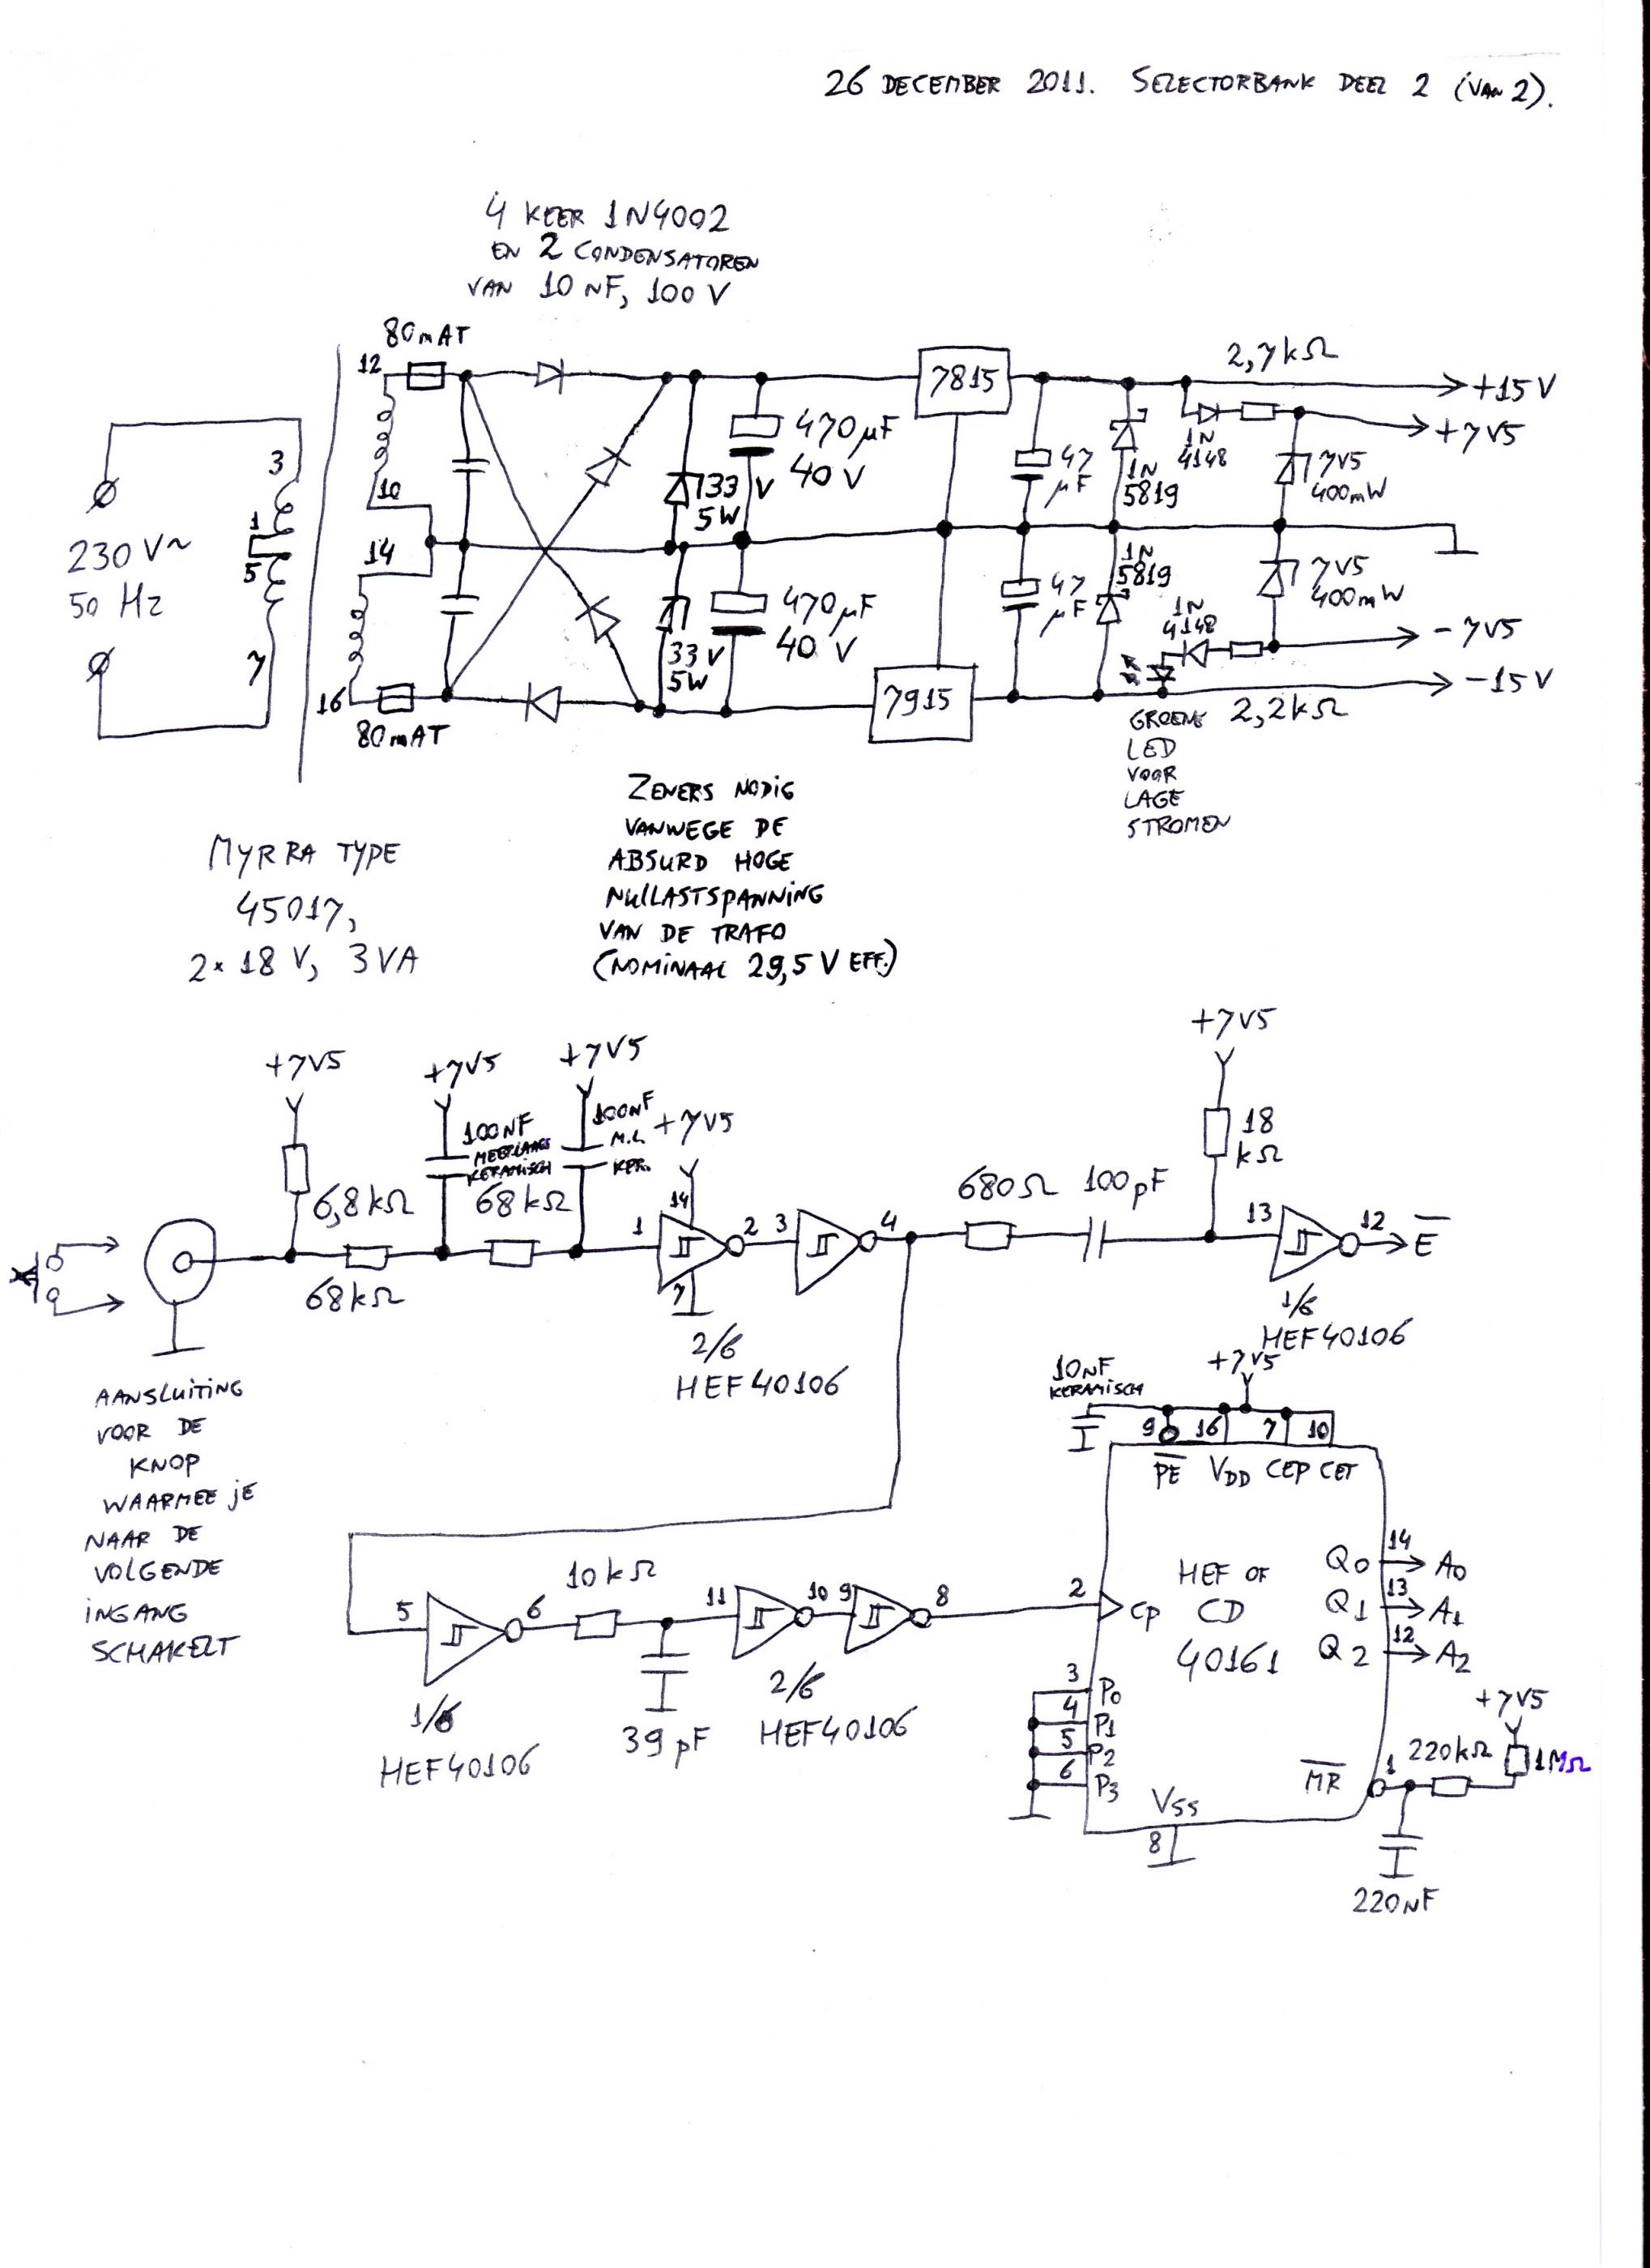 26 DECEMBER 2011. SELECTORBANK DEEL 2 (VAN 2).
4 KEER 1N4002
EN 2 CONDENSATOREN
VAN 10 nF, 100 V
80mAT
12
10
14
16
80mAT
3
1
5
7
230 V~
50 Hz
33 V
5W
470 µF
40 V
33 V
5W
470 µF
40 V
7815
7915
47
µF
47
µF
1N
5819
1N
5819
2,7kΩ
1N
4148
7V5
400mW
7V5
400mW
1N
4148
2,2kΩ
+15 V
+7V5
-7V5
-15 V
GROENE
LED
VOOR
LAGE
STROMEN
MYRRA TYPE
45017,
2× 18 V, 3VA
ZENERS NODIG
VANWEGE DE
ABSURD HOGE
NULLASTSPANNING
VAN DE TRAFO
(NOMINAAL 29,5 V EFF.)
+7V5
+7V5
+7V5
+7V5
+7V5
6,8kΩ
100nF
MEERLAAGS
KERAMISCH
100nF
M.L.
KER.
68kΩ
68kΩ
1
14
7
2
3
4
2/6
HEF40106
680Ω
100pF
18
kΩ
13
12
E̅
1/6
HEF40106
AANSLUITING
VOOR DE
KNOP
WAARMEE JE
NAAR DE
VOLGENDE
INGANG
SCHAKELT
5
6
1/6
HEF40106
10kΩ
39 pF
11
10
9
8
2/6
HEF40106
10nF
KERAMISCH
+7V5
9
16
7
10
P̅E̅ VDD CEP CET
2
CP
HEF OF
CD
40161
Q0 14 A0
Q1 13 A1
Q2 12 A2
3 P0
4 P1
5 P2
6 P3
VSS
8
M̅R̅
1
220kΩ
+7V5
1MΩ
220nF